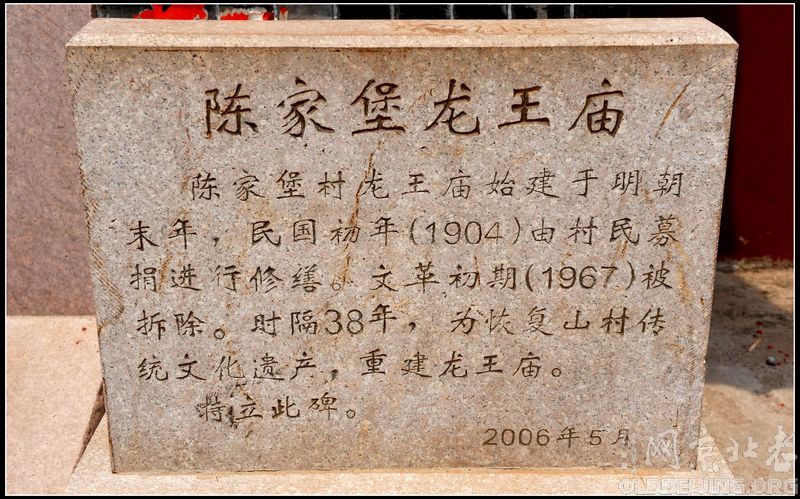 陈家堡龙王庙
陈家堡村龙王庙始建于明朝
末年，民国初年(1904)由村民募
捐进行修缮。文革初期(1967)被
拆除。时隔38年，为恢复山村传
统文化遗产，重建龙王庙。
特立此碑。
2006年5月
老北京网
OLDBEIJING.ORG